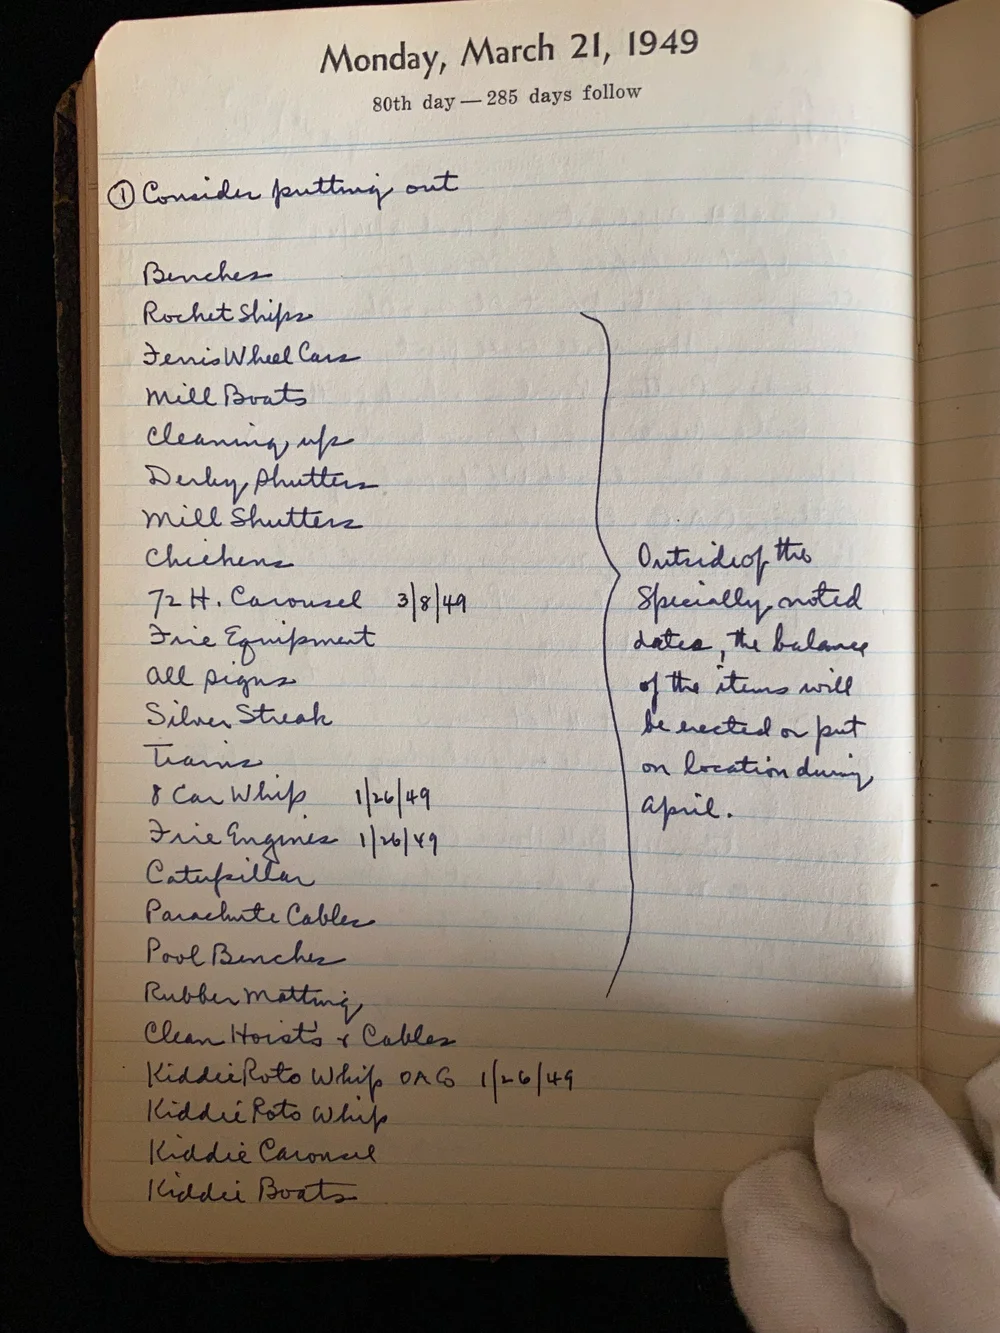 Monday, March 21, 1949
80th day — 285 days follow
① Consider putting out
Benches
Rocket Ships
Ferris Wheel Cars
Mill Boats
Cleaning up
Derby Shutters
Mill Shutters
Chickens
72 H. Carousel 3/8/49
Fire Equipment
All signs
Silver Streak
Trains
8 Car Whip 1/26/49
Fire Engines 1/26/49
Caterpillar
Parachute Cables
Pool Benches
Rubber Matting
Clean Hoists & Cables
Kiddie Roto Whip 1/26/49
Kiddie Roto Whip
Kiddie Carousel
Kiddie Boats
Outside of the
Specially noted
dates, the balance
of the items will
be erected or put
on location during
April.